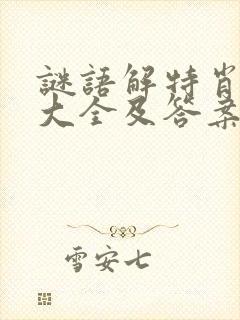 謎語解特肖
大全及答案
雪安七